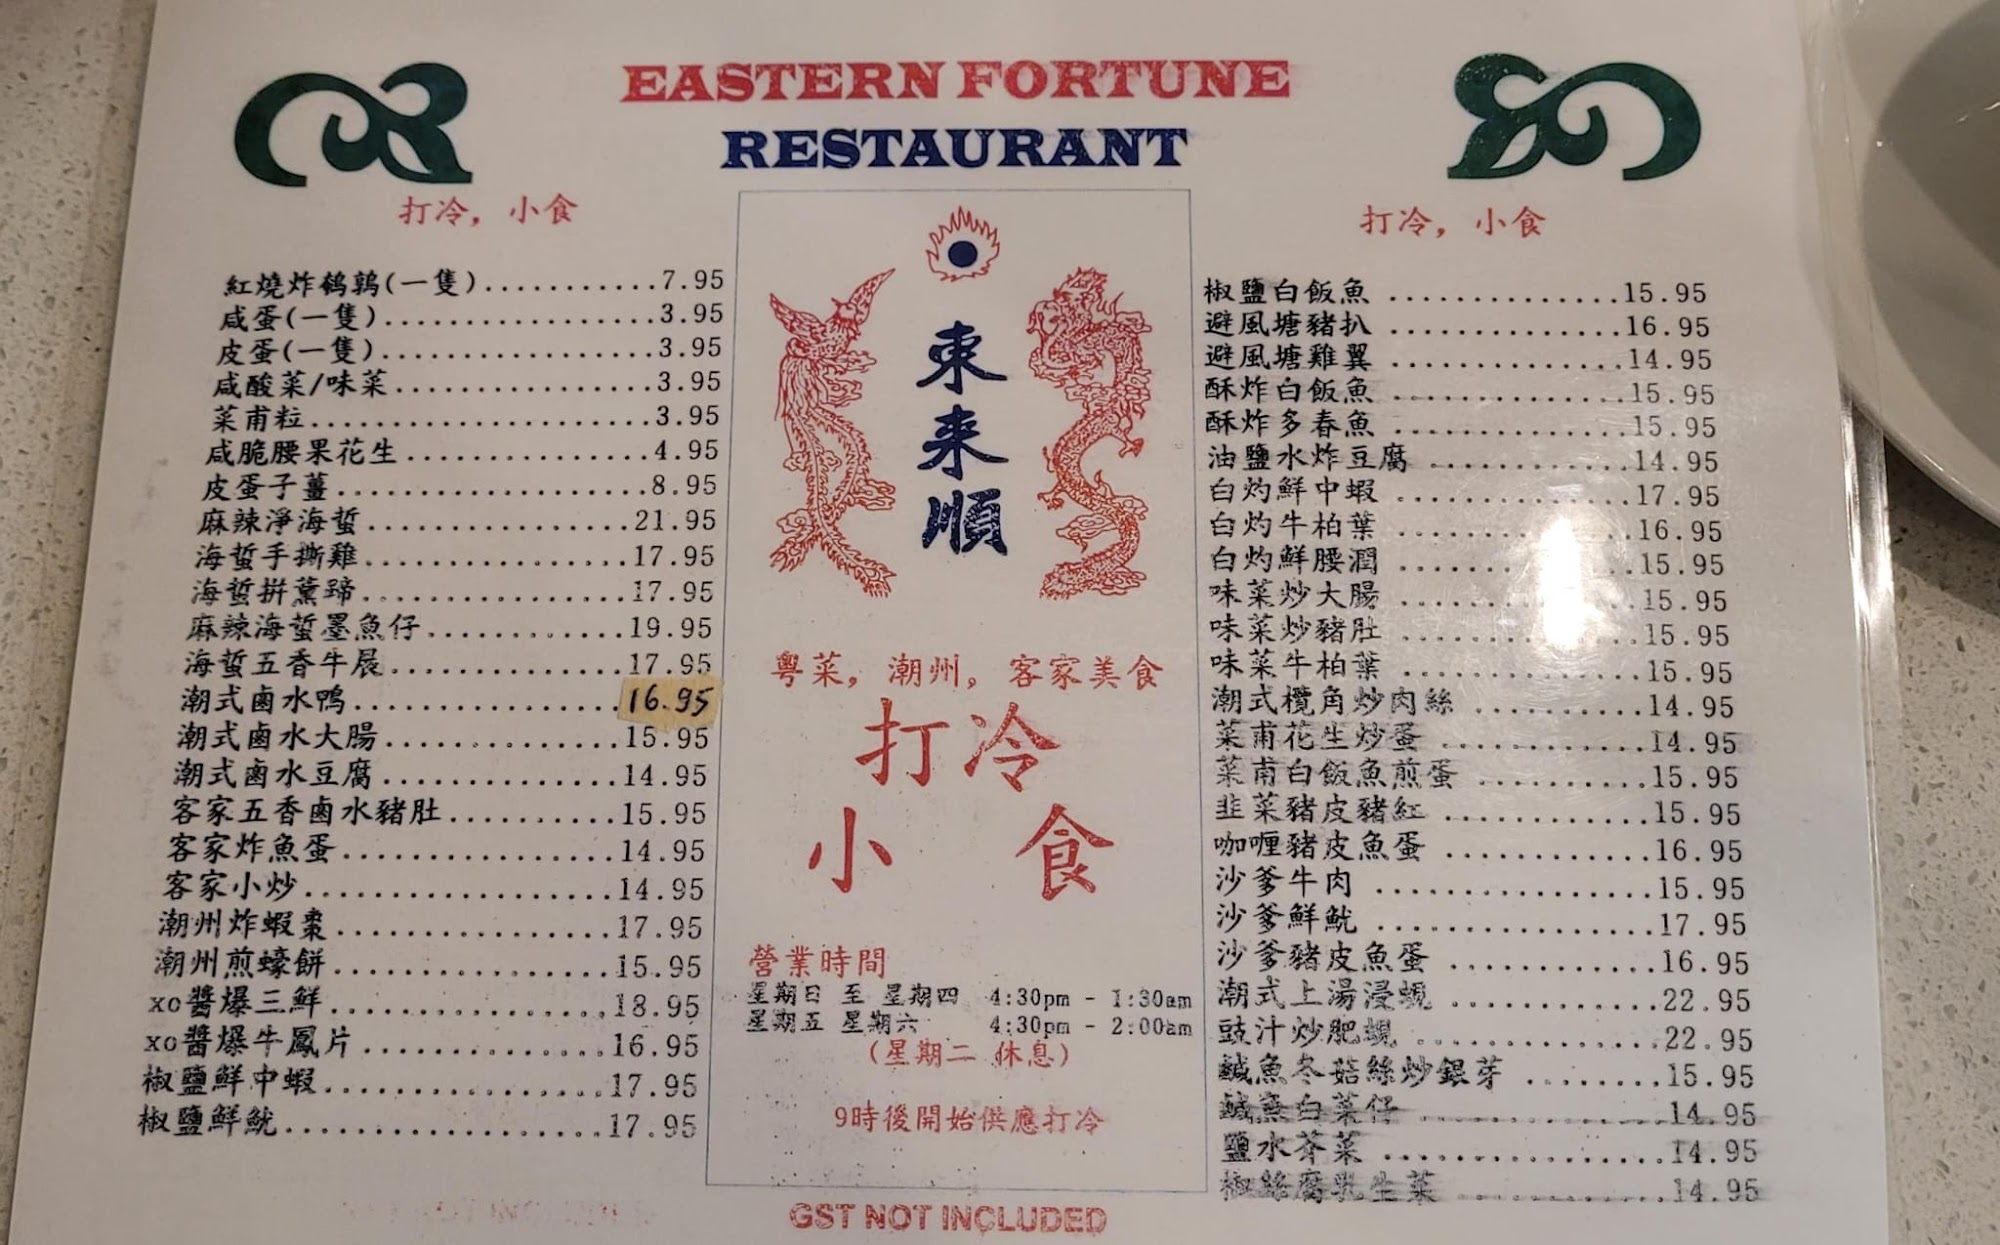 EASTERN FORTUNE
RESTAURANT
打冷，小食
紅燒炸鹌鹑(一隻)...........7.95
咸蛋(一隻).................3.95
皮蛋(一隻).................3.95
咸酸菜/味菜................3.95
菜甫粒.....................3.95
咸脆腰果花生...............4.95
皮蛋子薑...................8.95
麻辣淨海蜇................21.95
海蜇手撕雞................17.95
海蜇拼薰蹄................17.95
麻辣海蜇墨魚仔............19.95
海蜇五香牛𦟌..............17.95
潮式鹵水鴨................16.95
潮式鹵水大腸..............15.95
潮式鹵水豆腐..............14.95
客家五香鹵水豬肚..........15.95
客家炸魚蛋................14.95
客家小炒..................14.95
潮州炸蝦棗................17.95
潮州煎蠔餅................15.95
xo醬爆三鮮................18.95
xo醬爆牛鳳片..............16.95
椒鹽鮮中蝦................17.95
椒鹽鮮魷..................17.95
東來順
粤菜，潮州，客家美食
打冷
小食
營業時間
星期日 至 星期四 4:30pm - 1:30am
星期五 星期六 4:30pm - 2:00am
(星期二 休息)
9時後開始供應打冷
打冷，小食
椒鹽白飯魚 ..............15.95
避風塘豬扒 ..............16.95
避風塘雞翼 ..............14.95
酥炸白飯魚 ..............15.95
酥炸多春魚 ..............15.95
油鹽水炸豆腐 ............14.95
白灼鮮中蝦 ..............17.95
白灼牛柏葉 ..............16.95
白灼鮮腰潤 ..............15.95
味菜炒大腸 ..............15.95
味菜炒豬肚 ..............15.95
味菜牛柏葉 ..............15.95
潮式欖角炒肉絲 ..........14.95
菜甫花生炒蛋 ............14.95
菜甫白飯魚煎蛋 ..........15.95
韭菜豬皮豬紅 ............15.95
咖喱豬皮魚蛋 ............16.95
沙爹牛肉 ................15.95
沙爹鮮魷 ................17.95
沙爹豬皮魚蛋 ............16.95
潮式上湯浸蜆 ............22.95
豉汁炒肥蜆 ..............22.95
鹹魚冬菇絲炒銀芽 ........15.95
鹹魚白菜仔 ..............14.95
鹽水芥菜 ................14.95
椒絲腐乳生菜 ............14.95
GST NOT INCLUDED